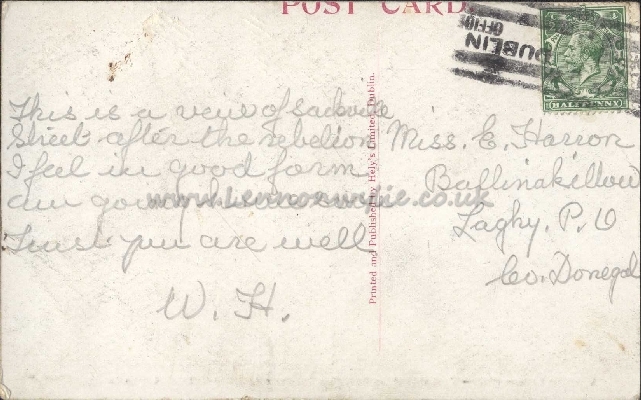 POST CARD
DUBLIN
HALF PENNY
This is a veiw of Sackville
Street after the rebelion
I feel in good form
am going home soon
Trust you are well
W. H.
Printed and Published by Hely's Limited, Dublin.
Miss. E. Harron
Ballinakillew
Laghy. P. O
Co. Donegal